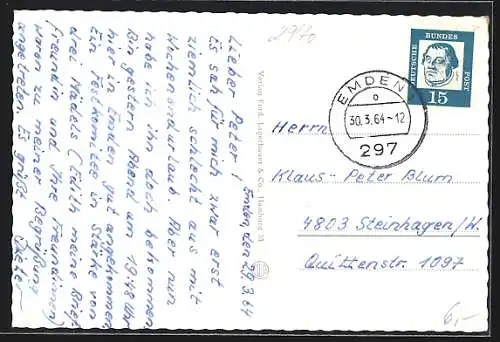 Emden, den 29.3.64
Lieber Peter!
Es sah für mich zwar erst
ziemlich schlecht aus mit
Wochenendurlaub. Aber nun
habe ich ihn doch bekommen.
Bin gestern Abend um 19.48 Uhr
hier in Emden gut angekommen.
Ein Festkomitee in Stärke von
drei Mädels (Edith meine Brief-
freundin und Ihre Freundinnen)
waren zu meiner Begrüßung
angetreten. Es grüßt Dieter
2970
Verlag Ferd. Lagerbauer & Co., Hamburg 21
DEUTSCHE BUNDESPOST
15
EMDEN
30.3.64-12
297
Herrn
Klaus-Peter Blum
4803 Steinhagen/W.
Quittenstr. 1097
6,-